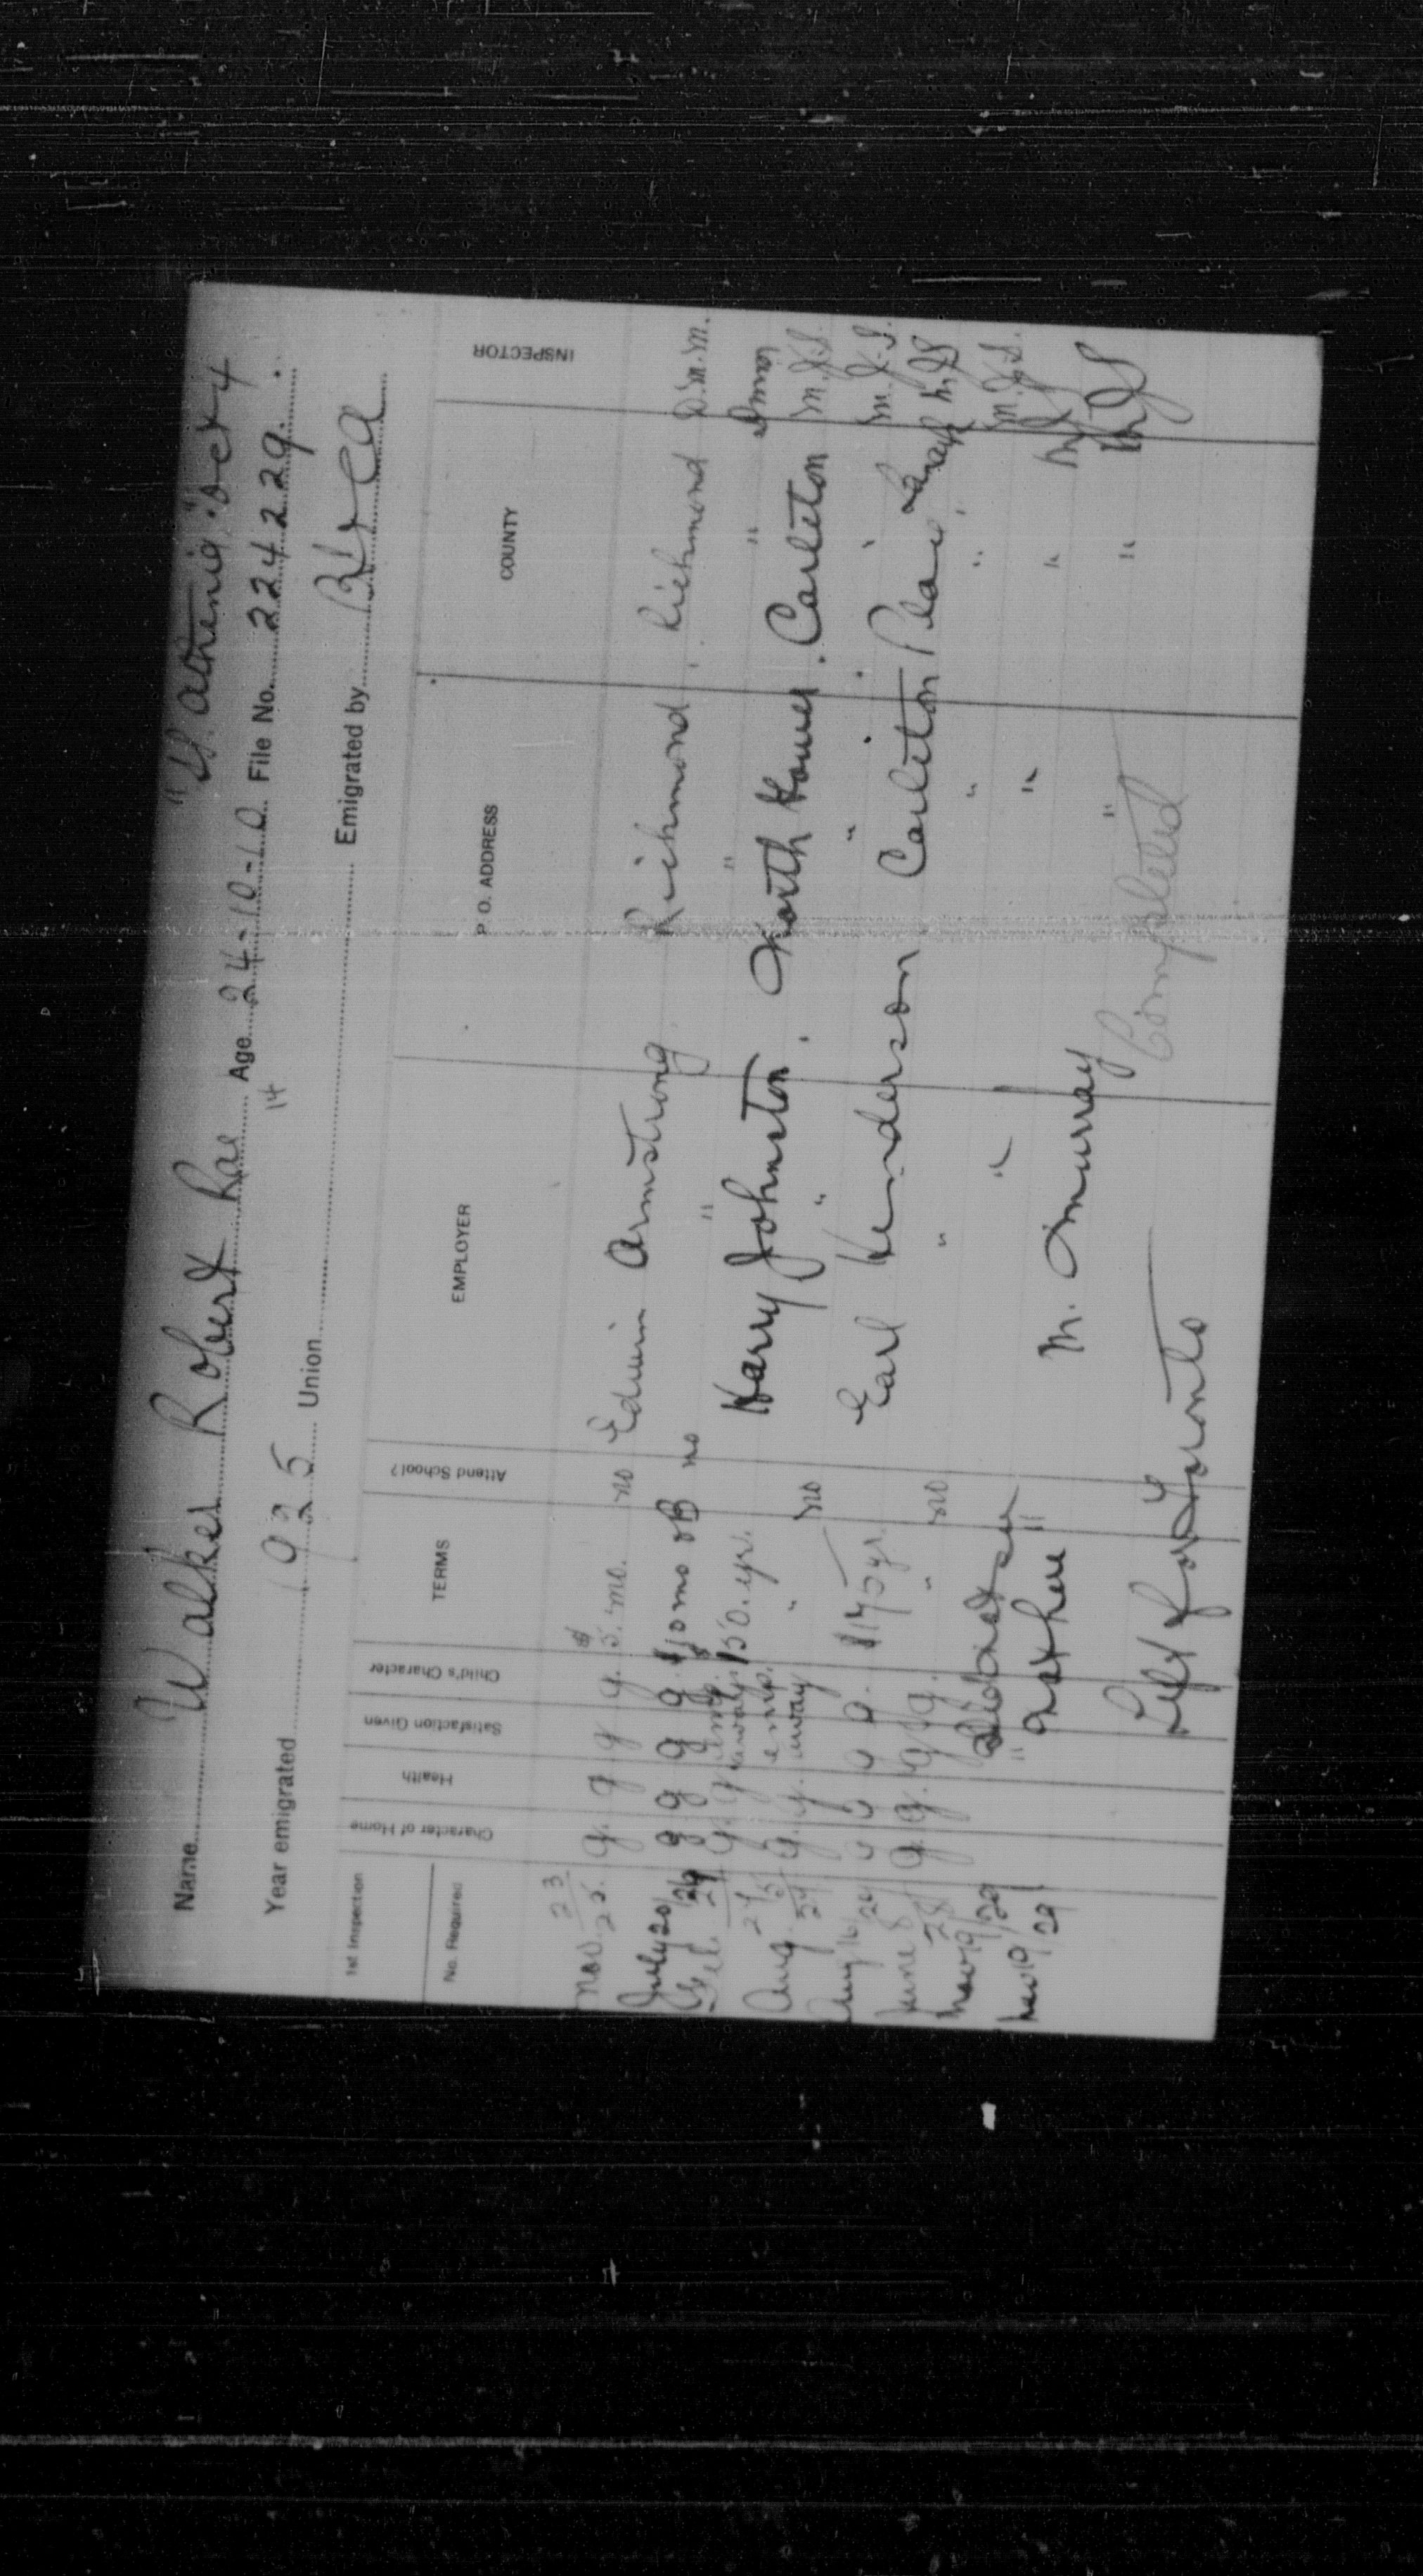 "S. Athenia" Oct 4
Name Walker Robert Rae Age 24-10-10 File No. 224229.
14
Year emigrated 1925 Union Emigrated by
1st Inspection
No. Required
Character of Home Health Satisfaction Given Child's Character TERMS Attend School? EMPLOYER P. O. ADDRESS COUNTY INSPECTOR
Nov. 23 25. g. g g g. $5. mo. no Edwin Armstrong. Richmond. Richmond D.M.M.
July 20 26 g g g g. $10 mo OB no " " "
g. g emp. away $150. yr. Harry Johnston. North Gower. Carleton M.J.S.
Aug. g. y. emp. away " no " " " M.J.S.
Aug 16 $175 yr. Earl Henderson Carleton Place Lanark M.J.S.
June 8 28 g. g. g g. " no " " " M.J.S.
Nov 19/29 Did not see " " " MJS
Nov 19/29 " at here " M. Murray " " MJS
Completed
Left for Toronto